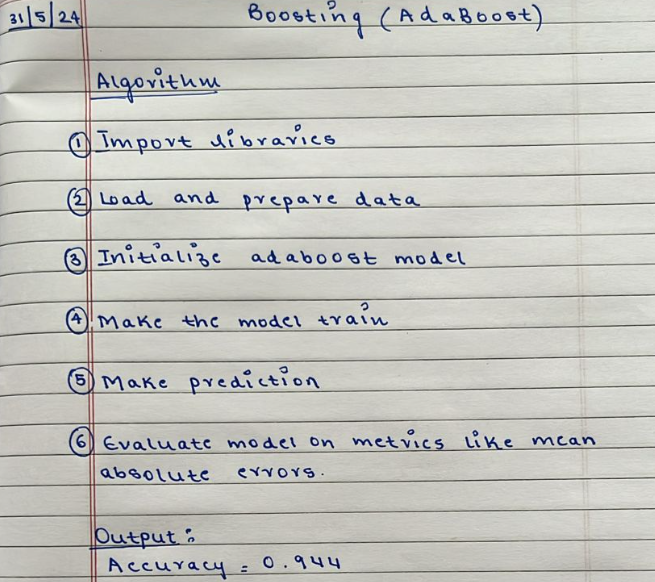 31/5/24 Boosting (AdaBoost)
Algorithm
① Import libraries
② Load and prepare data
③ Initialize adaboost model
④ Make the model train
⑤ Make prediction
⑥ Evaluate model on metrics like mean
absolute errors.
Output :
Accuracy = 0.944